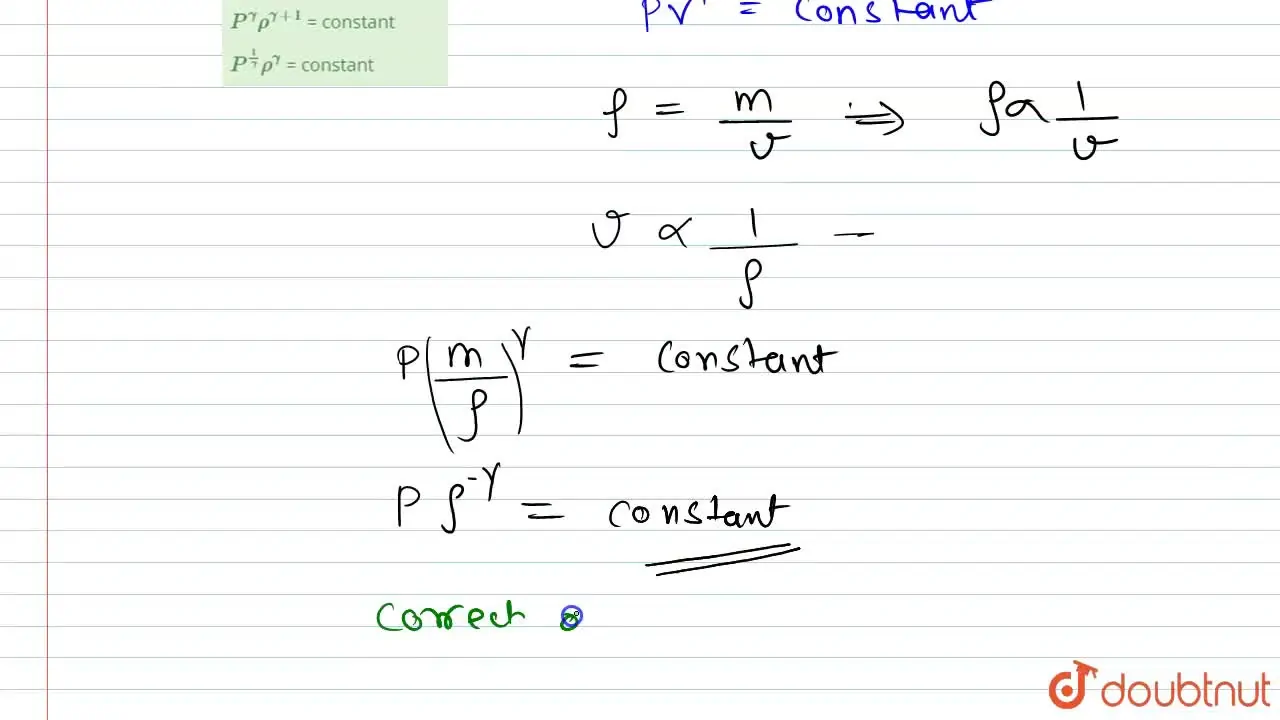 P^γ ρ^(γ+1) = constant
P^(1/γ) ρ^γ = constant
PV^γ = constant
ρ = m/v ⟹ ρ ∝ 1/v
v ∝ 1/ρ —
P(m/ρ)^γ = constant
P ρ^-γ = constant
Correct
doubtnut